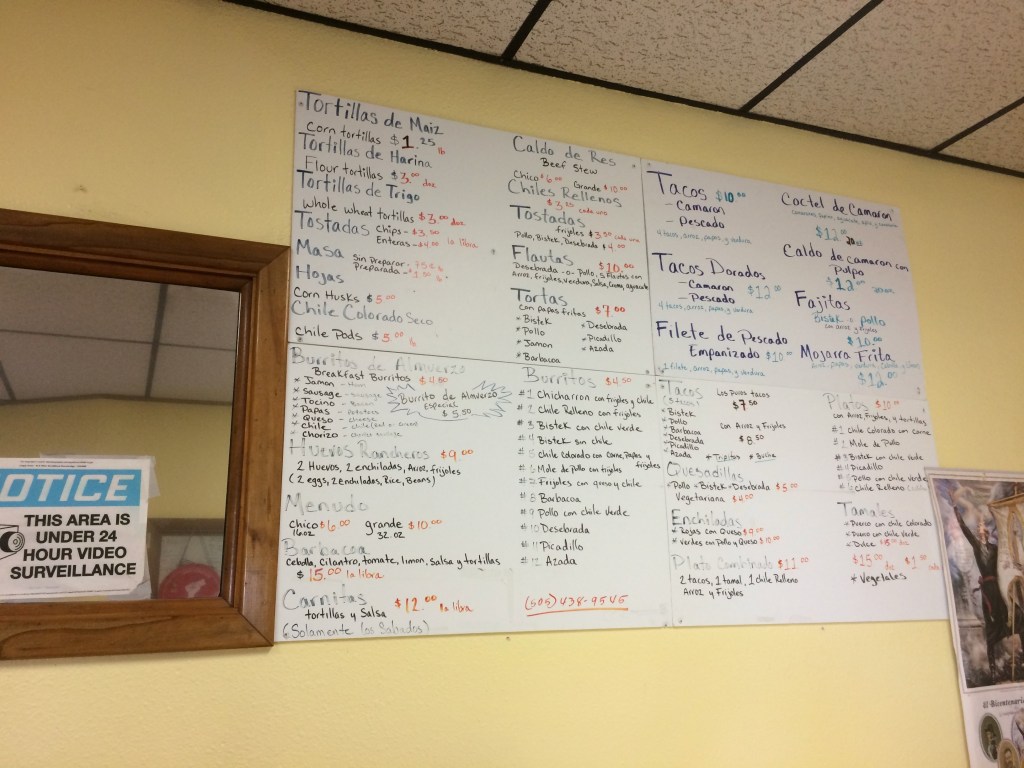 Tortillas de Maiz
Corn tortillas $1.25 lb
Tortillas de Harina
Flour tortillas $3.00 doz
Tortillas de Trigo
Whole wheat tortillas $3.00 doz
Tostadas Chips - $3.00
Enteras - $4.00 la libra
Masa Sin Preparar -
Preparada -
Hojas
Corn Husks $5.00
Chile Colorado Seco
Chile Pods $5.00 lb
Caldo de Res
Beef Stew
Chico $6.00 Grande $10.00
Chiles Rellenos
$3.25 cada uno
Tostadas
frijoles $3.50 cada una
Pollo, Bistek, Desebrada $4.00
Flautas $10.00
Desebrada -o- Pollo, 5 Flautas con
Arroz, frijoles, verdura, Salsa, Crema, aguacate
Tortas
con papas fritas $7.00
* Bistek * Desebrada
* Pollo * Picadillo
* Jamon * Azada
* Barbacoa
Tacos $10.00
- Camaron
- Pescado
4 tacos, arroz, papas, y verdura
Tacos Dorados
- Camaron $12.00
- Pescado
4 tacos, arroz, papas, y verdura
Filete de Pescado
Empanizado $10.00
1 filete, arroz, papas, y verdura
Coctel de Camaron
$12.00
Caldo de camaron con
Pulpo
$12.00
Fajitas
Bistek o pollo
con arroz y frijoles
$10.00
Mojarra Frita
$12.00
Burritos de Almuerzo
Breakfast Burritos $4.50
* Jamon - Ham
* Sausage - Sausage
* Tocino - Bacon
* Papas - Potatoes
* Queso - Cheese
* Chile -
* Chorizo -
Burrito de Almuerzo
Especial
$5.50
Huevos Rancheros $9.00
2 Huevos, 2 enchiladas, Arroz, frijoles
(2 eggs, 2 enchiladas, Rice, Beans)
Menudo
chico $6.00 grande $10.00
16oz 32 oz
Barbacoa
Cebolla, cilantro, tomate, limon, salsa y tortillas
$15.00 la libra
Carnitas $12.00 la libra
tortillas y Salsa
(Solamente los Sabados)
Burritos $4.50
#1 Chicharron con frijoles y chile
#2 Chile Relleno con frijoles
#3 Bistek con chile verde
#4 Bistek sin chile
#5 Chile colorado con Carne, Papas y frijoles
#6 Mole de Pollo con frijoles
#7 Frijoles con queso y chile
#8 Barbacoa
#9 Pollo con chile Verde
#10 Desebrada
#11 Picadillo
#12 Azada
(505) 438-9545
Tacos
* Bistek
* Pollo
* Barbacoa
* Desebrada
* Picadillo
* Azada * Tripitas * Buche
Los Puros tacos
$7.50
con Arroz y Frijoles
$8.50
Quesadillas
* Pollo * Bistek * Desebrada $5.00
Vegetariana $4.00
Enchiladas
* Rojas con Queso $9.00
* Verdes con Pollo y Queso $10.00
Plato Combinado $11.00
2 tacos, 1 tamal, 1 chile Relleno
Arroz y Frijoles
Platos $10.00
con Arroz, Frijoles, y tortillas
#1 Chile Colorado con Carne
#2 Mole de Pollo
#3 Bistek con chile Verde
#4 Picadillo
#5 Pollo con chile Verde
#6 Chile Relleno
Tamales
* Puerco con chile Colorado
* Puerco con chile Verde
* Dulce
$15.00 doz
* Vegetales
OTICE
THIS AREA IS
UNDER 24
HOUR VIDEO
SURVEILLANCE
El Bicentenario